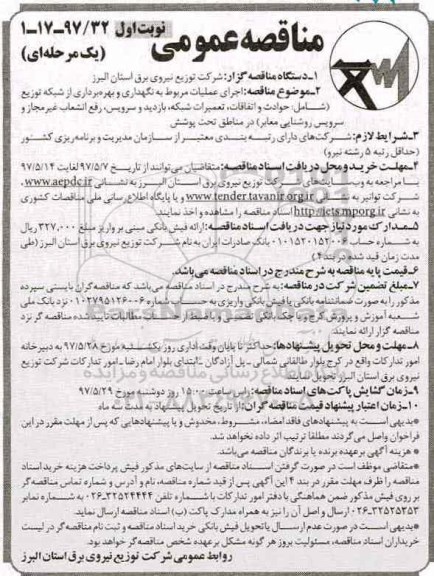 مناقصه عمومی
نوبت اول ۹۷/۳۲-۱۷-۱
(یک مرحله‌ای)
۱-دستگاه مناقصه گزار: شرکت توزیع نیروی برق استان البرز
۲-موضوع مناقصه: اجرای عملیات مربوط به نگهداری و بهره‌برداری از شبکه توزیع
(شامل: حوادث و اتفاقات، تعمیرات شبکه، بازدید و سرویس، رفع انشعاب غیرمجاز و
سرویس روشنایی معابر) در مناطق تحت پوشش
۳-شرایط لازم: شرکت‌های دارای رتبه بندی معتبر از سازمان مدیریت و برنامه‌ریزی کشور
(حداقل رتبه ۵ رشته نیرو)
۴-مهلت خرید و محل دریافت اسناد مناقصه: متقاضیان می‌توانند از تاریخ ۹۷/۵/۷ لغایت ۹۷/۵/۱۴
با مراجعه به وب سایت‌های شرکت توزیع نیروی برق استان البرز به نشانی www.aepdc.ir
شرکت توانیر به نشانی www.tender.tavanir.org.ir و یا پایگاه اطلاع رسانی ملی مناقصات کشوری
به نشانی http://iets.mporg.ir اسناد مناقصه را مشاهده و اخذ نمایند.
۵-مدارک مورد نیاز جهت دریافت اسناد مناقصه: ارائه فیش بانکی مبنی بر واریز مبلغ ۳۲۷,۰۰۰ ریال
به شماره حساب ۰۱۰۱۵۲۰۱۵۲۰۰۶ بانک صادرات ایران به نام شرکت توزیع نیروی برق استان البرز (طی
مدت زمان قید شده در بند ۴)
۶-قیمت پایه مناقصه به شرح مندرج در اسناد مناقصه می‌باشد.
۷-مبلغ تضمین شرکت در مناقصه: به شرح مندرج در اسناد مناقصه می‌باشد که مناقصه‌گران بایستی سپرده
مذکور را به صورت ضمانتنامه بانکی یا فیش بانکی واریزی به حساب شماره ۰۱۰۲۷۹۵۱۲۶۰۰۶ نزد بانک ملی
شعبه آموزش و پرورش کرج، یا چک بانکی تضمین شده و یا مطالبات تایید شده مناقصه گر نزد
مناقصه گزار ارائه نمایند.
۸-مهلت و محل تحویل پیشنهادها: حداکثر تا پایان وقت اداری روز یکشنبه مورخ ۹۷/۵/۲۸ به دبیرخانه
امور تدارکات واقع در کرج بلوار طالقانی شمالی- پل آزادگان -ابتدای بلوار امام رضا- امور تدارکات شرکت توزیع
نیروی برق استان البرز تحویل نمایند.
۹-زمان گشایش پاکت‌های اسناد مناقصه: راس ساعت ۱۵:۰۰ روز دوشنبه مورخ ۹۷/۵/۲۹
۱۰-زمان اعتبار پیشنهاد قیمت مناقصه گران: از تاریخ تحویل پیشنهاد به مدت سه ماه
*بدیهی است به پیشنهادهای فاقد امضاء، مشروط، مخدوش و یا پیشنهادهایی که پس از مهلت مقرر در این
فراخوان واصل می‌گردند مطلقا ترتیب اثر داده نخواهد شد.
* هزینه آگهی برعهده برنده یا برندگان مناقصه می‌باشد.
*متقاضی موظف است در صورت گرفتن اسناد مناقصه از سایت‌های مذکور فیش پرداخت هزینه خرید اسناد
مناقصه را ظرف مهلت مقرر در بند ۴ این آگهی پس از قید شماره مناقصه، نام و آدرس و شماره تماس مناقصه‌گر
بر روی فیش مذکور ضمن هماهنگی با دفتر امور تدارکات با شماره تلفن ۰۲۶-۳۲۵۲۴۴۴۴ به شماره نمابر
۰۲۶-۳۲۵۲۵۳۵۳ ارسال و اصل آن را نیز به همراه مدارک پاکت (ب) اسناد مناقصه ارسال نمایند.
*بدیهی است در صورت عدم ارسال یا تحویل فیش بانکی خرید اسناد مناقصه و ثبت نام مناقصه‌گر در لیست
خریداران اسناد مناقصه، مسئولیت بروز هر گونه مشکل برعهده شخص مناقصه‌گر خواهد بود.
روابط عمومی شرکت توزیع نیروی برق استان البرز